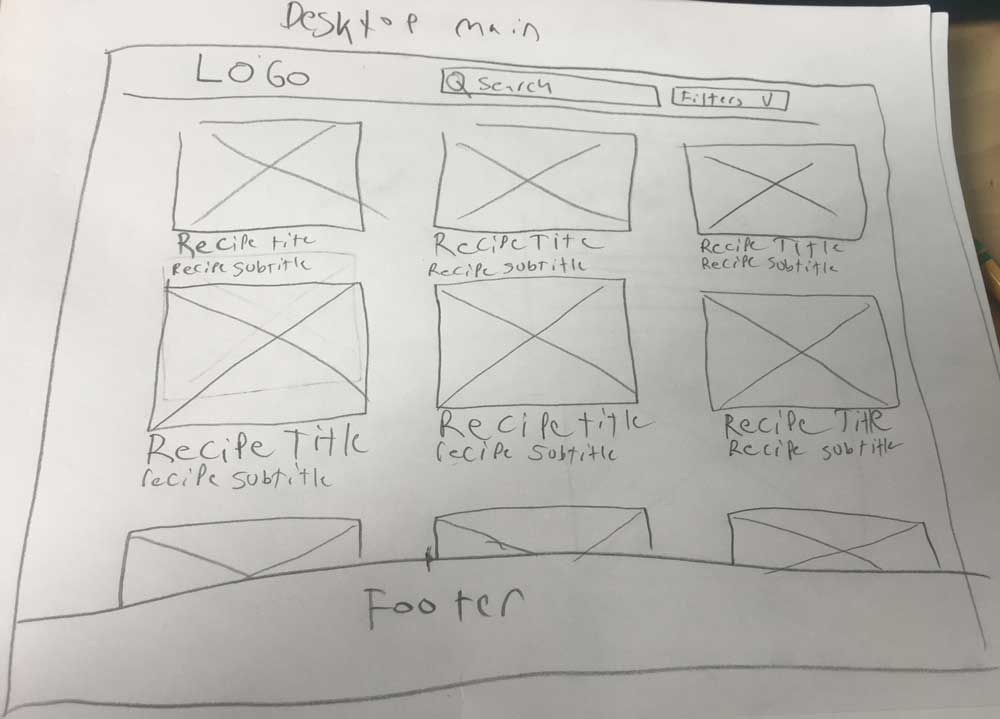 Desktop main
LOGO
Search
Filters V
Recipe tite
Recipe Subtitle
Recipe Tite
Recipe Subtitle
Recipe Title
Recipe Subtitle
Recipe Title
recipe Subtitle
Recipe title
recipe Subtitle
Recipe Title
Recipe Subtitle
Footer